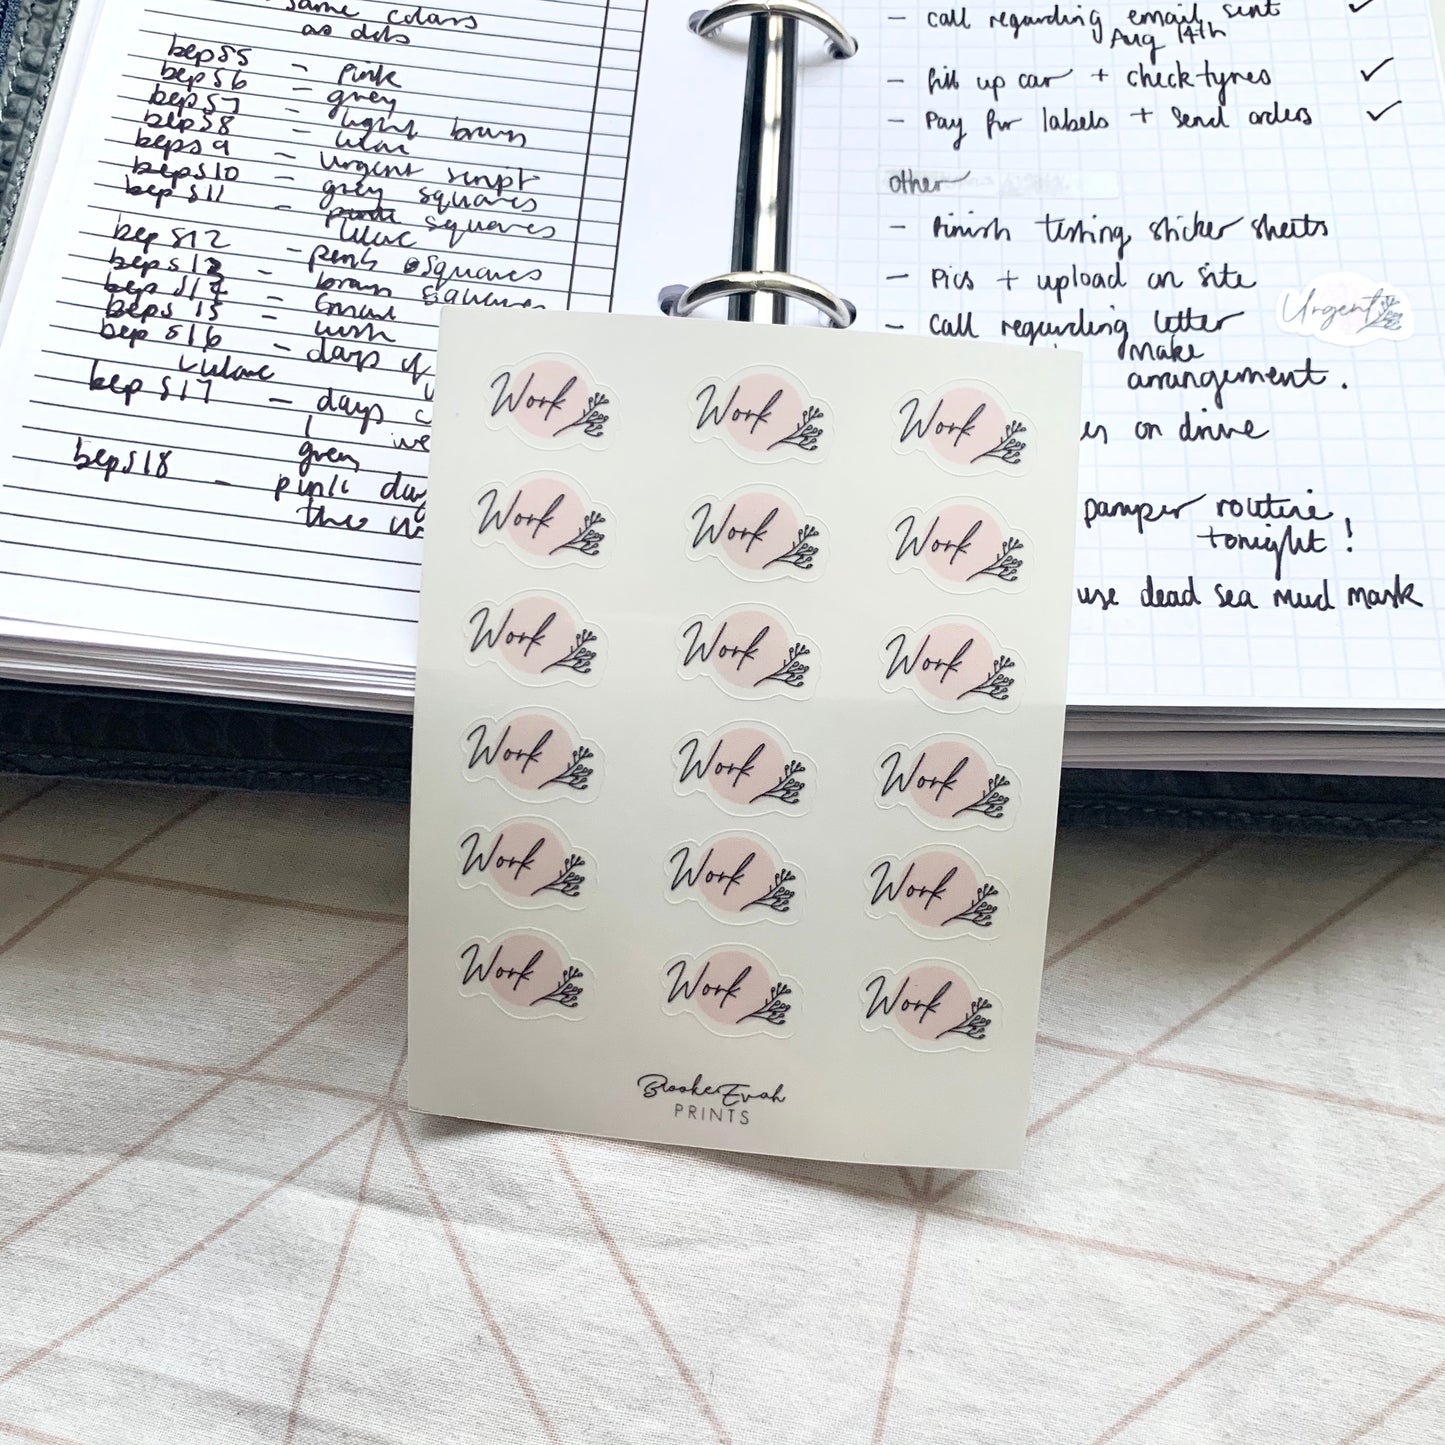 same colours
as dots
beps5 - pink
beps6 - grey
beps7 - light brown
beps8 - lilac
beps9 - urgent script
beps10 - grey squares
beps11 - pink squares
lilac
beps12 - pink squares
beps13 - brown squares
beps14 -
beps15 - work
beps16 - days of
lilac
beps17 - days
grey
beps18 - pink days
the
- call regarding email sent
Aug 14th
- fill up car + check tyres
- Pay for labels + send orders
other
- Finish testing sticker sheets
- Pics + upload on site
- call regarding letter
make
arrangement.
on drive
pamper routine
tonight!
use dead sea mud mask
Urgent
Work Work Work
Work Work Work
Work Work Work
Work Work Work
Work Work Work
Work Work Work
BrookeEvah
PRINTS